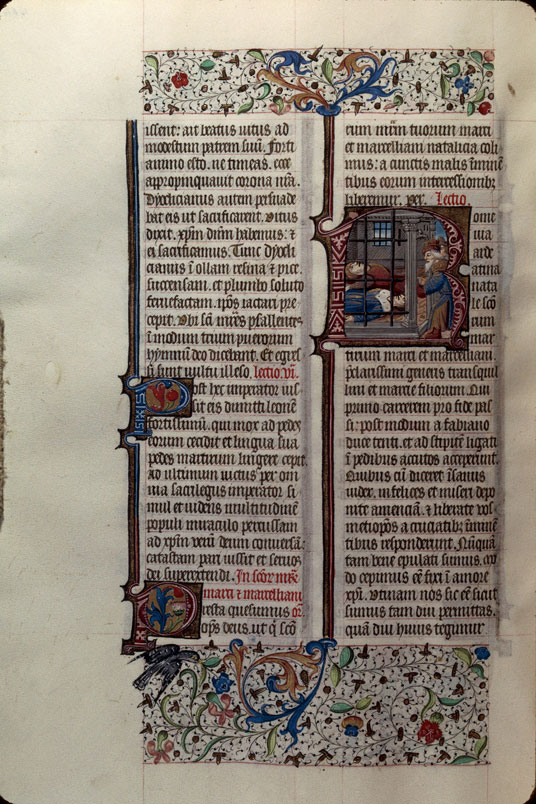 issent: ait beatus uitus ad
modestum patrem suū. Forti
animo esto. ne timeas. ecce
appropinquauit corona nr̄a.
Dyoclicianus autem persuade
bat eis ut sacrificarent. Vitus
dixit. xp̄m dn̄m habemus: &
ei sacrificamus. Tunc dyocli
cianus ī ollam resina & pice
succensam. et plumbo soluto
feruefactam. ip̄os iactari pre
cepit. Vbi sc̄i mr̄es psallentes
ī modum trium puerorum
hymnum deo dicebant. Et egres
si sunt multi illeso. lectio. vī.
Post hec imperator ius
sit eis dimitti leonē
fortissimū. qui mox ad pedes
eorum cecidit et lingua sua
pedes martirum lingere cepit.
ad ultimum uictus per om
nia sacrilegus imperator si
mul et uidens multitudinē
populi miraculo percussam
ad xp̄m verū deum conuersā:
catastam pari iussit et seruos
dei superextendi. In scōr mr̄m̄
marci & marcelliani
Presta quesumus oī
ops deus. ut q̄ scō
rum mr̄m tuorum marci
et marcelliani natalicia coli
mus: a cunctis malis īminē
tibus eorum intercessionibꝫ
liberemur. per. Lectio.
Rome
ciuita
arde
latina
nata
le scō
rum
mar
tirum marci et marcelliani.
p̄clarissimi generis tranquil
lini et marcie filiorum. Qui
primo carcerem pro fide pas
si: post modum a fabiano
duce tenti. et ad stipitē ligati
ī pedibus acutos acceperunt.
Quibus cū diceret īsanus
iudex. infelices et miseri depo
nite amenciā. & liberate vos
metip̄os a cruciatibꝫ īminē
tibus responderunt. Nūquā
tam bene epulati sumus. co
do cepimus eē fixi ī amore
xp̄i. Vtinam nos sic eē sicut
sumus tam diu permittas.
quā diu huius tegimur